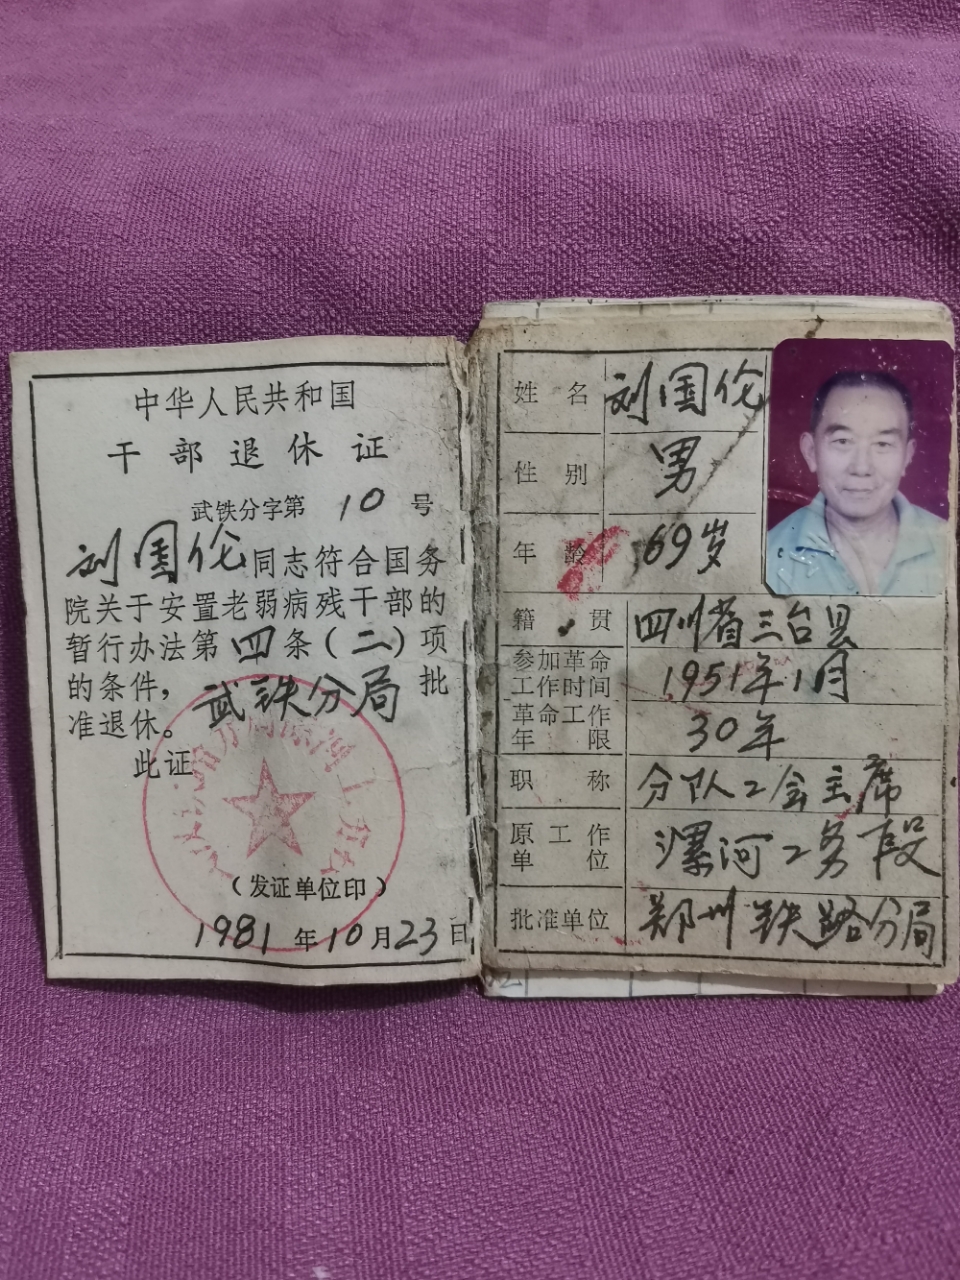 中华人民共和国
干部退休证
武铁分字第 10 号
刘国伦同志符合国务
院关于安置老弱病残干部的
暂行办法第四条(二)项
的条件，武铁分局批
准退休。
此证
（发证单位印）
1981年10月23日
姓名 刘国伦
性别 男
年龄 69岁
籍贯 四川省三台县
参加革命
工作时间 1951年1月
革命工作
年限 30年
职称 分队工会主席
原工作
单位 漯河工务段
批准单位 郑州铁路分局